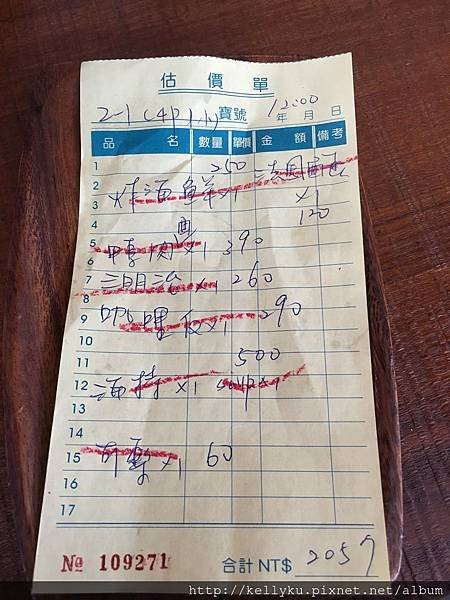 估價單
2-1 (4P 寶號 12:00 年 月 日
品 名 數量 單價 金 額 備考
1 250
2 炸海鮮x1
3 x1
4 120
5 x1 390
6
7 三明治 x1 260
8
9 咖哩飯x1 290
10
11 500
12 x1 x1
13
14
15 可樂x1 60
16
17
№ 109271 合計 NT$ 2057
http://kellyku.pixnet.net/album